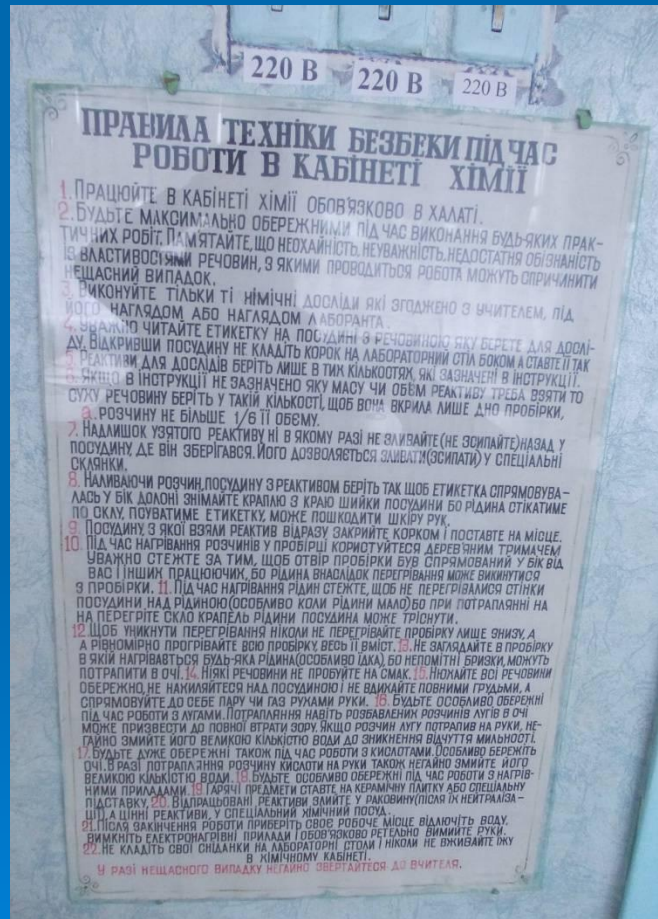 220 В 220 В 220 В
ПРАВИЛА ТЕХНІКИ БЕЗБЕКИ ПІД ЧАС
РОБОТИ В КАБІНЕТІ ХІМІЇ
1. ПРАЦЮЙТЕ В КАБІНЕТІ ХІМІЇ ОБОВ'ЯЗКОВО В ХАЛАТІ.
2. БУДЬТЕ МАКСИМАЛЬНО ОБЕРЕЖНИМИ ПІД ЧАС ВИКОНАННЯ БУДЬ-ЯКИХ ПРАК-
ТИЧНИХ РОБІТ. ПАМ'ЯТАЙТЕ, ЩО НЕОХАЙНІСТЬ, НЕУВАЖНІСТЬ, НЕДОСТАТНЯ ОБІЗНАНІСТЬ
ІЗ ВЛАСТИВОСТЯМИ РЕЧОВИН, З ЯКИМИ ПРОВОДИТЬСЯ РОБОТА МОЖУТЬ СПРИЧИНИТИ
НЕЩАСНИЙ ВИПАДОК.
3. ВИКОНУЙТЕ ТІЛЬКИ ТІ ХІМІЧНІ ДОСЛІДИ ЯКІ ЗГОДЖЕНО З УЧИТЕЛЕМ, ПІД
ЙОГО НАГЛЯДОМ АБО НАГЛЯДОМ ЛАБОРАНТА.
4. УВАЖНО ЧИТАЙТЕ ЕТИКЕТКУ НА ПОСУДИНІ З РЕЧОВИНОЮ ЯКУ БЕРЕТЕ ДЛЯ ДОСЛІ-
ДУ. ВІДКРИВШИ ПОСУДИНУ НЕ КЛАДІТЬ КОРОК НА ЛАБОРАТОРНИЙ СТІЛ БОКОМ А СТАВТЕ ЇЇ ТАК
5. РЕАКТИВИ ДЛЯ ДОСЛІДІВ БЕРІТЬ ЛИШЕ В ТИХ КІЛЬКОСТЯХ, ЯКІ ЗАЗНАЧЕНІ В ІНСТРУКЦІЇ.
6. ЯКЩО В ІНСТРУКЦІЇ НЕ ЗАЗНАЧЕНО ЯКУ МАСУ ЧИ ОБЄМ РЕАКТИВУ ТРЕБА ВЗЯТИ ТО
СУХУ РЕЧОВИНУ БЕРІТЬ У ТАКІЙ КІЛЬКОСТІ, ЩОБ ВОНА ВКРИЛА ЛИШЕ ДНО ПРОБІРКИ,
а. РОЗЧИНУ НЕ БІЛЬШЕ 1/6 ЇЇ ОБЄМУ.
7. НАДЛИШОК УЗЯТОГО РЕАКТИВУ НІ В ЯКОМУ РАЗІ НЕ ЗЛИВАЙТЕ (НЕ ЗСИПАЙТЕ) НАЗАД У
ПОСУДИНУ, ДЕ ВІН ЗБЕРІГАВСЯ. ЙОГО ДОЗВОЛЯЄТЬСЯ ЗЛИВАТИ (ЗСИПАТИ) У СПЕЦІАЛЬНІ
СКЛЯНКИ.
8. НАЛИВАЮЧИ РОЗЧИН, ПОСУДИНУ З РЕАКТИВОМ БЕРІТЬ ТАК ЩОБ ЕТИКЕТКА СПРЯМОВУВА-
ЛАСЬ У БІК ДОЛОНІ ЗНІМАЙТЕ КРАПЛЮ З КРАЮ ШИЙКИ ПОСУДИНИ БО РІДИНА СТІКАТИМЕ
ПО СКЛУ, ПСУВАТИМЕ ЕТИКЕТКУ, МОЖЕ ПОШКОДИТИ ШКІРУ РУК.
9. ПОСУДИНУ, З ЯКОЇ ВЗЯЛИ РЕАКТИВ ВІДРАЗУ ЗАКРИЙТЕ КОРКОМ І ПОСТАВТЕ НА МІСЦЕ.
10. ПІД ЧАС НАГРІВАННЯ РОЗЧИНІВ У ПРОБІРЦІ КОРИСТУЙТЕСЯ ДЕРЕВ'ЯНИМ ТРИМАЧЕМ
УВАЖНО СТЕЖТЕ ЗА ТИМ, ЩОБ ОТВІР ПРОБІРКИ БУВ СПРЯМОВАНИЙ У БІК ВІД
ВАС І ІНШИХ ПРАЦЮЮЧИХ, БО РІДИНА ВНАСЛІДОК ПЕРЕГРІВАННЯ МОЖЕ ВИКИНУТИСЯ
З ПРОБІРКИ. 11. ПІД ЧАС НАГРІВАННЯ РІДИН СТЕЖТЕ, ЩОБ НЕ ПЕРЕГРІВАЛИСЯ СТІНКИ
ПОСУДИНИ НАД РІДИНОЮ (ОСОБЛИВО КОЛИ РІДИНИ МАЛО) БО ПРИ ПОТРАПЛЯННІ НА
НА ПЕРЕГРІТЕ СКЛО КРАПЕЛЬ РІДИНИ ПОСУДИНА МОЖЕ ТРІСНУТИ.
12. ЩОБ УНИКНУТИ ПЕРЕГРІВАННЯ НІКОЛИ НЕ ПЕРЕГРІВАЙТЕ ПРОБІРКУ ЛИШЕ ЗНИЗУ, А
А РІВНОМІРНО ПРОГРІВАЙТЕ ВСЮ ПРОБІРКУ, ВЕСЬ ЇЇ ВМІСТ. 13. НЕ ЗАГЛЯДАЙТЕ В ПРОБІРКУ
В ЯКІЙ НАГРІВАЄТЬСЯ БУДЬ-ЯКА РІДИНА (ОСОБЛИВО ЇДКА), БО НЕПОМІТНІ БРИЗКИ, МОЖУТЬ
ПОТРАПИТИ В ОЧІ. 14. НІЯКІ РЕЧОВИНИ НЕ ПРОБУЙТЕ НА СМАК. 15. НЮХАЙТЕ ВСІ РЕЧОВИНИ
ОБЕРЕЖНО, НЕ НАХИЛЯЙТЕСЯ НАД ПОСУДИНОЮ І НЕ ВДИХАЙТЕ ПОВНИМИ ГРУДЬМИ, А
СПРЯМОВУЙТЕ ДО СЕБЕ ПАРУ ЧИ ГАЗ РУХАМИ РУКИ. 16. БУДЬТЕ ОСОБЛИВО ОБЕРЕЖНІ
ПІД ЧАС РОБОТИ З ЛУГАМИ. ПОТРАПЛЯННЯ НАВІТЬ РОЗБАВЛЕНИХ РОЗЧИНІВ ЛУГІВ В ОЧІ
МОЖЕ ПРИЗВЕСТИ ДО ПОВНОЇ ВТРАТИ ЗОРУ. ЯКЩО РОЗЧИН ЛУГУ ПОТРАПИВ НА РУКИ, НЕ-
ГАЙНО ЗМИЙТЕ ЙОГО ВЕЛИКОЮ КІЛЬКІСТЮ ВОДИ ДО ЗНИКНЕННЯ ВІДЧУТТЯ МИЛЬНОСТІ.
17. БУДЬТЕ ДУЖЕ ОБЕРЕЖНІ ТАКОЖ ПІД ЧАС РОБОТИ З КИСЛОТАМИ. ОСОБЛИВО БЕРЕЖІТЬ
ОЧІ. В РАЗІ ПОТРАПЛАННЯ РОЗЧИНУ КИСЛОТИ НА РУКИ ТАКОЖ НЕГАЙНО ЗМИЙТЕ ЙОГО
ВЕЛИКОЮ КІЛЬКІСТЮ ВОДИ. 18. БУДЬТЕ ОСОБЛИВО ОБЕРЕЖНІ ПІД ЧАС РОБОТИ З НАГРІВ-
НИМИ ПРИЛАДАМИ. 19 ГАРЯЧІ ПРЕДМЕТИ СТАВТЕ НА КЕРАМІЧНУ ПЛИТКУ АБО СПЕЦІАЛЬНУ
ПІДСТАВКУ. 20. ВІДПРАЦЬОВАНІ РЕАКТИВИ ЗЛИЙТЕ У РАКОВИНУ (ПІСЛЯ ЇХ НЕЙТРАЛІЗА-
ЦІЇ), А ЦІННІ РЕАКТИВИ, У СПЕЦІАЛЬНИЙ ХІМІЧНИЙ ПОСУД.
21. ПІСЛЯ ЗАКІНЧЕННЯ РОБОТИ ПРИБЕРІТЬ СВОЄ РОБОЧЕ МІСЦЕ ВІДЛЮЧІТЬ ВОДУ,
ВИМКНІТЬ ЕЛЕКТРОНАГРІВНІ ПРИЛАДИ І ОБОВ'ЯЗКОВО РЕТЕЛЬНО ВИМИЙТЕ РУКИ.
22. НЕ КЛАДІТЬ СВОЇ СНІДАНКИ НА ЛАБОРАТОРНІ СТОЛИ І НІКОЛИ НЕ ВЖИВАЙТЕ ЇЖУ
В ХІМІЧНОМУ КАБІНЕТІ.
У РАЗІ НЕЩАСНОГО ВИПАДКУ НЕГАЙНО ЗВЕРТАЙТЕСЯ ДО ВЧИТЕЛЯ.